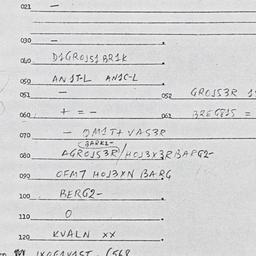 021 —
030 —
040 D1GROJS1 BR1K
050 AN1T-L AN1C-L
051 — 052 GROJS3R
060 + = - 061 3REG815 =
070 — OM1T+ VAS3R
BARK2-
080 AGROJS3R/HOJ3X3RBARG2-
090 OFM7 HOJ3XN BARG
100 BERG2-
110 0
120 KVALN XX